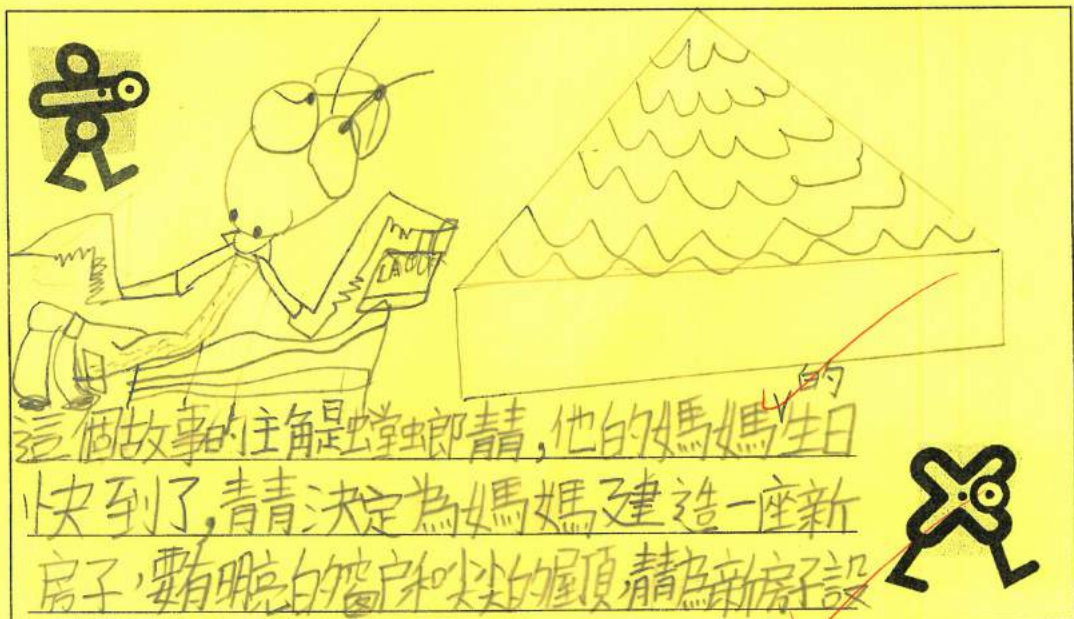 的
這個故事的主角是螳螂青青，他的媽媽生日
快到了，青青決定為媽媽建造一座新
房子，要有明亮的窗户和尖尖的屋頂，青青為新房子設